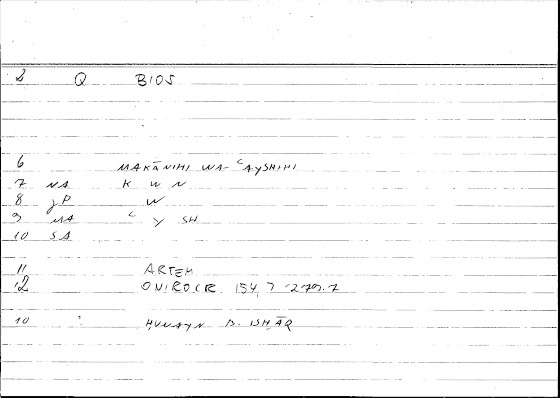 2 Q BIOS
6 MAKĀNIHI WA-ʿAYSHIHI
7 NA K W N
8 JP W
9 MA ʿ Y SH
10 SA
11 ARTEM
12 ONIROCR. 154,7 - 279.7
10 ḤUNAYN B. ISḤĀQ